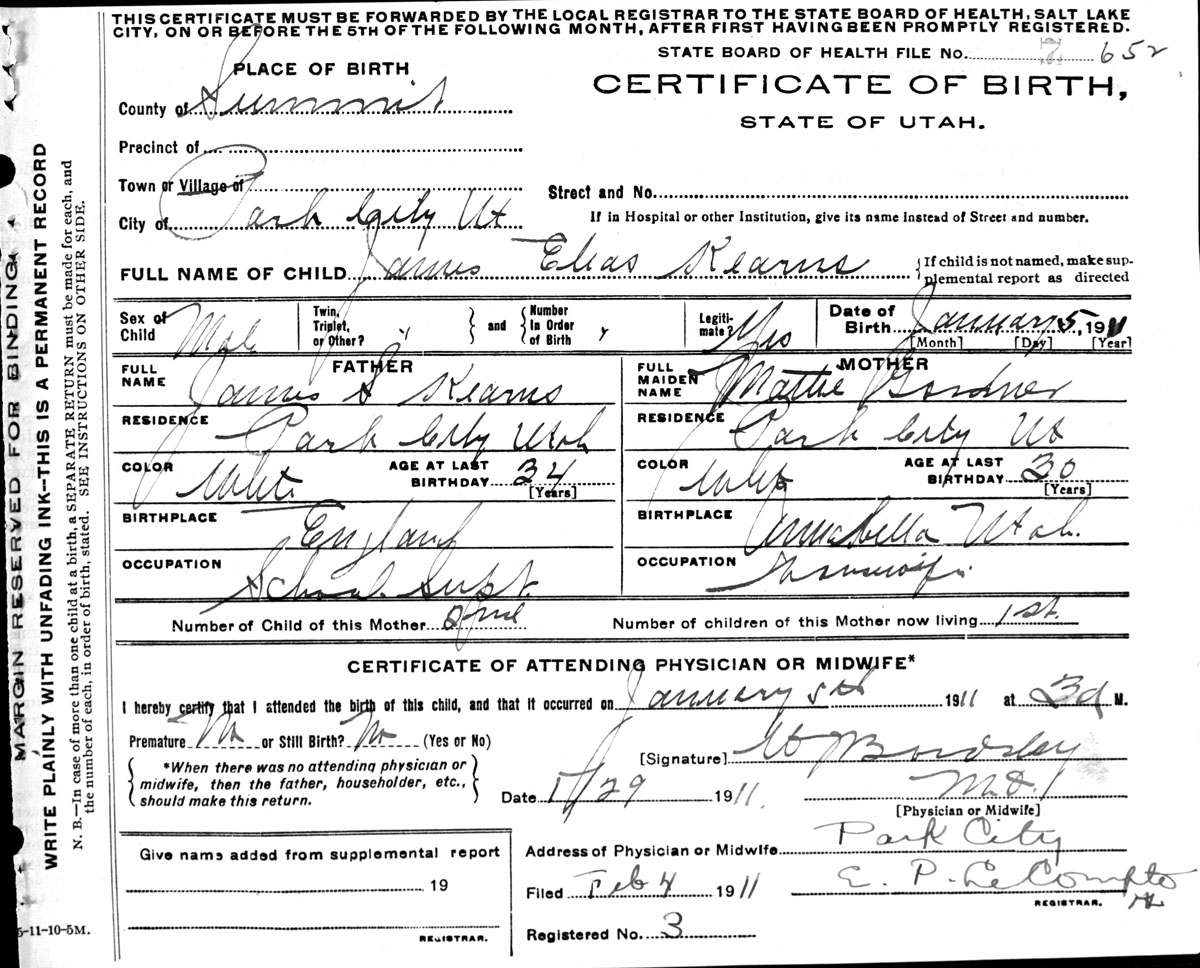 THIS CERTIFICATE MUST BE FORWARDED BY THE LOCAL REGISTRAR TO THE STATE BOARD OF HEALTH, SALT LAKE
CITY, ON OR BEFORE THE 5TH OF THE FOLLOWING MONTH, AFTER FIRST HAVING BEEN PROMPTLY REGISTERED.
STATE BOARD OF HEALTH FILE No. 652
PLACE OF BIRTH
CERTIFICATE OF BIRTH,
STATE OF UTAH.
County of Summit
Precinct of
Town or Village of
Street and No.
City of Park City Ut
If in Hospital or other Institution, give its name instead of Street and number.
FULL NAME OF CHILD James Elias Kearns
If child is not named, make sup-
plemental report as directed
Sex of Child Male
Twin, Triplet, or Other?
and
Number In Order of Birth
Legiti-mate? Yes
Date of Birth January 5, 1911
[Month] [Day] [Year]
FATHER
FULL NAME James S Kearns
RESIDENCE Park City Utah
COLOR White
AGE AT LAST BIRTHDAY 34
[Years]
BIRTHPLACE England
OCCUPATION School Supt.
MOTHER
FULL MAIDEN NAME Mattie Gardner
RESIDENCE Park City Ut
COLOR White
AGE AT LAST BIRTHDAY 30
[Years]
BIRTHPLACE Annabella Utah.
OCCUPATION Housewife
Number of Child of this Mother
Number of children of this Mother now living 1st.
CERTIFICATE OF ATTENDING PHYSICIAN OR MIDWIFE*
I hereby certify that I attended the birth of this child, and that it occurred on January 5th 1911 at M.
Premature No or Still Birth? No (Yes or No)
*When there was no attending physician or
midwife, then the father, householder, etc.,
should make this return.
[Signature]
M.D.
[Physician or Midwife]
Date 1/29 1911.
Address of Physician or Midwife Park City
Filed Feb 4 1911 E. P. Le Compte
REGISTRAR.
Registered No. 3
Give name added from supplemental report
19
REGISTRAR.
MARGIN RESERVED FOR BINDING
WRITE PLAINLY WITH UNFADING INK—THIS IS A PERMANENT RECORD
N. B.—In case of more than one child at a birth, a SEPARATE RETURN must be made for each, and
the number of each, in order of birth, stated. SEE INSTRUCTIONS ON OTHER SIDE.
5-11-10-5M.